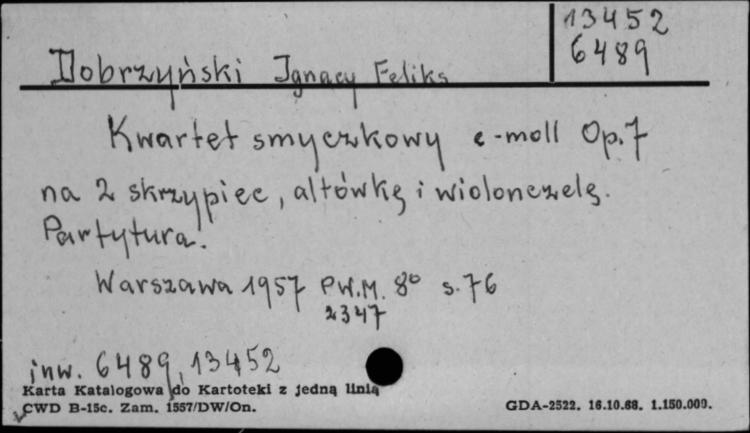 13452
6489
Dobrzyński Ignacy Feliks
Kwartet smyczkowy e-moll Op. 7
na 2 skrzypiec, altówkę i wiolonczelę.
Partytura.
Warszawa 1957 PW.M. 8° s. 76
2347
inw. 6489, 13452
Karta Katalogowa do Kartoteki z jedną linią
CWD B-15c. Zam. 1557/DW/On.
GDA-2522. 16.10.68. 1.150.000.